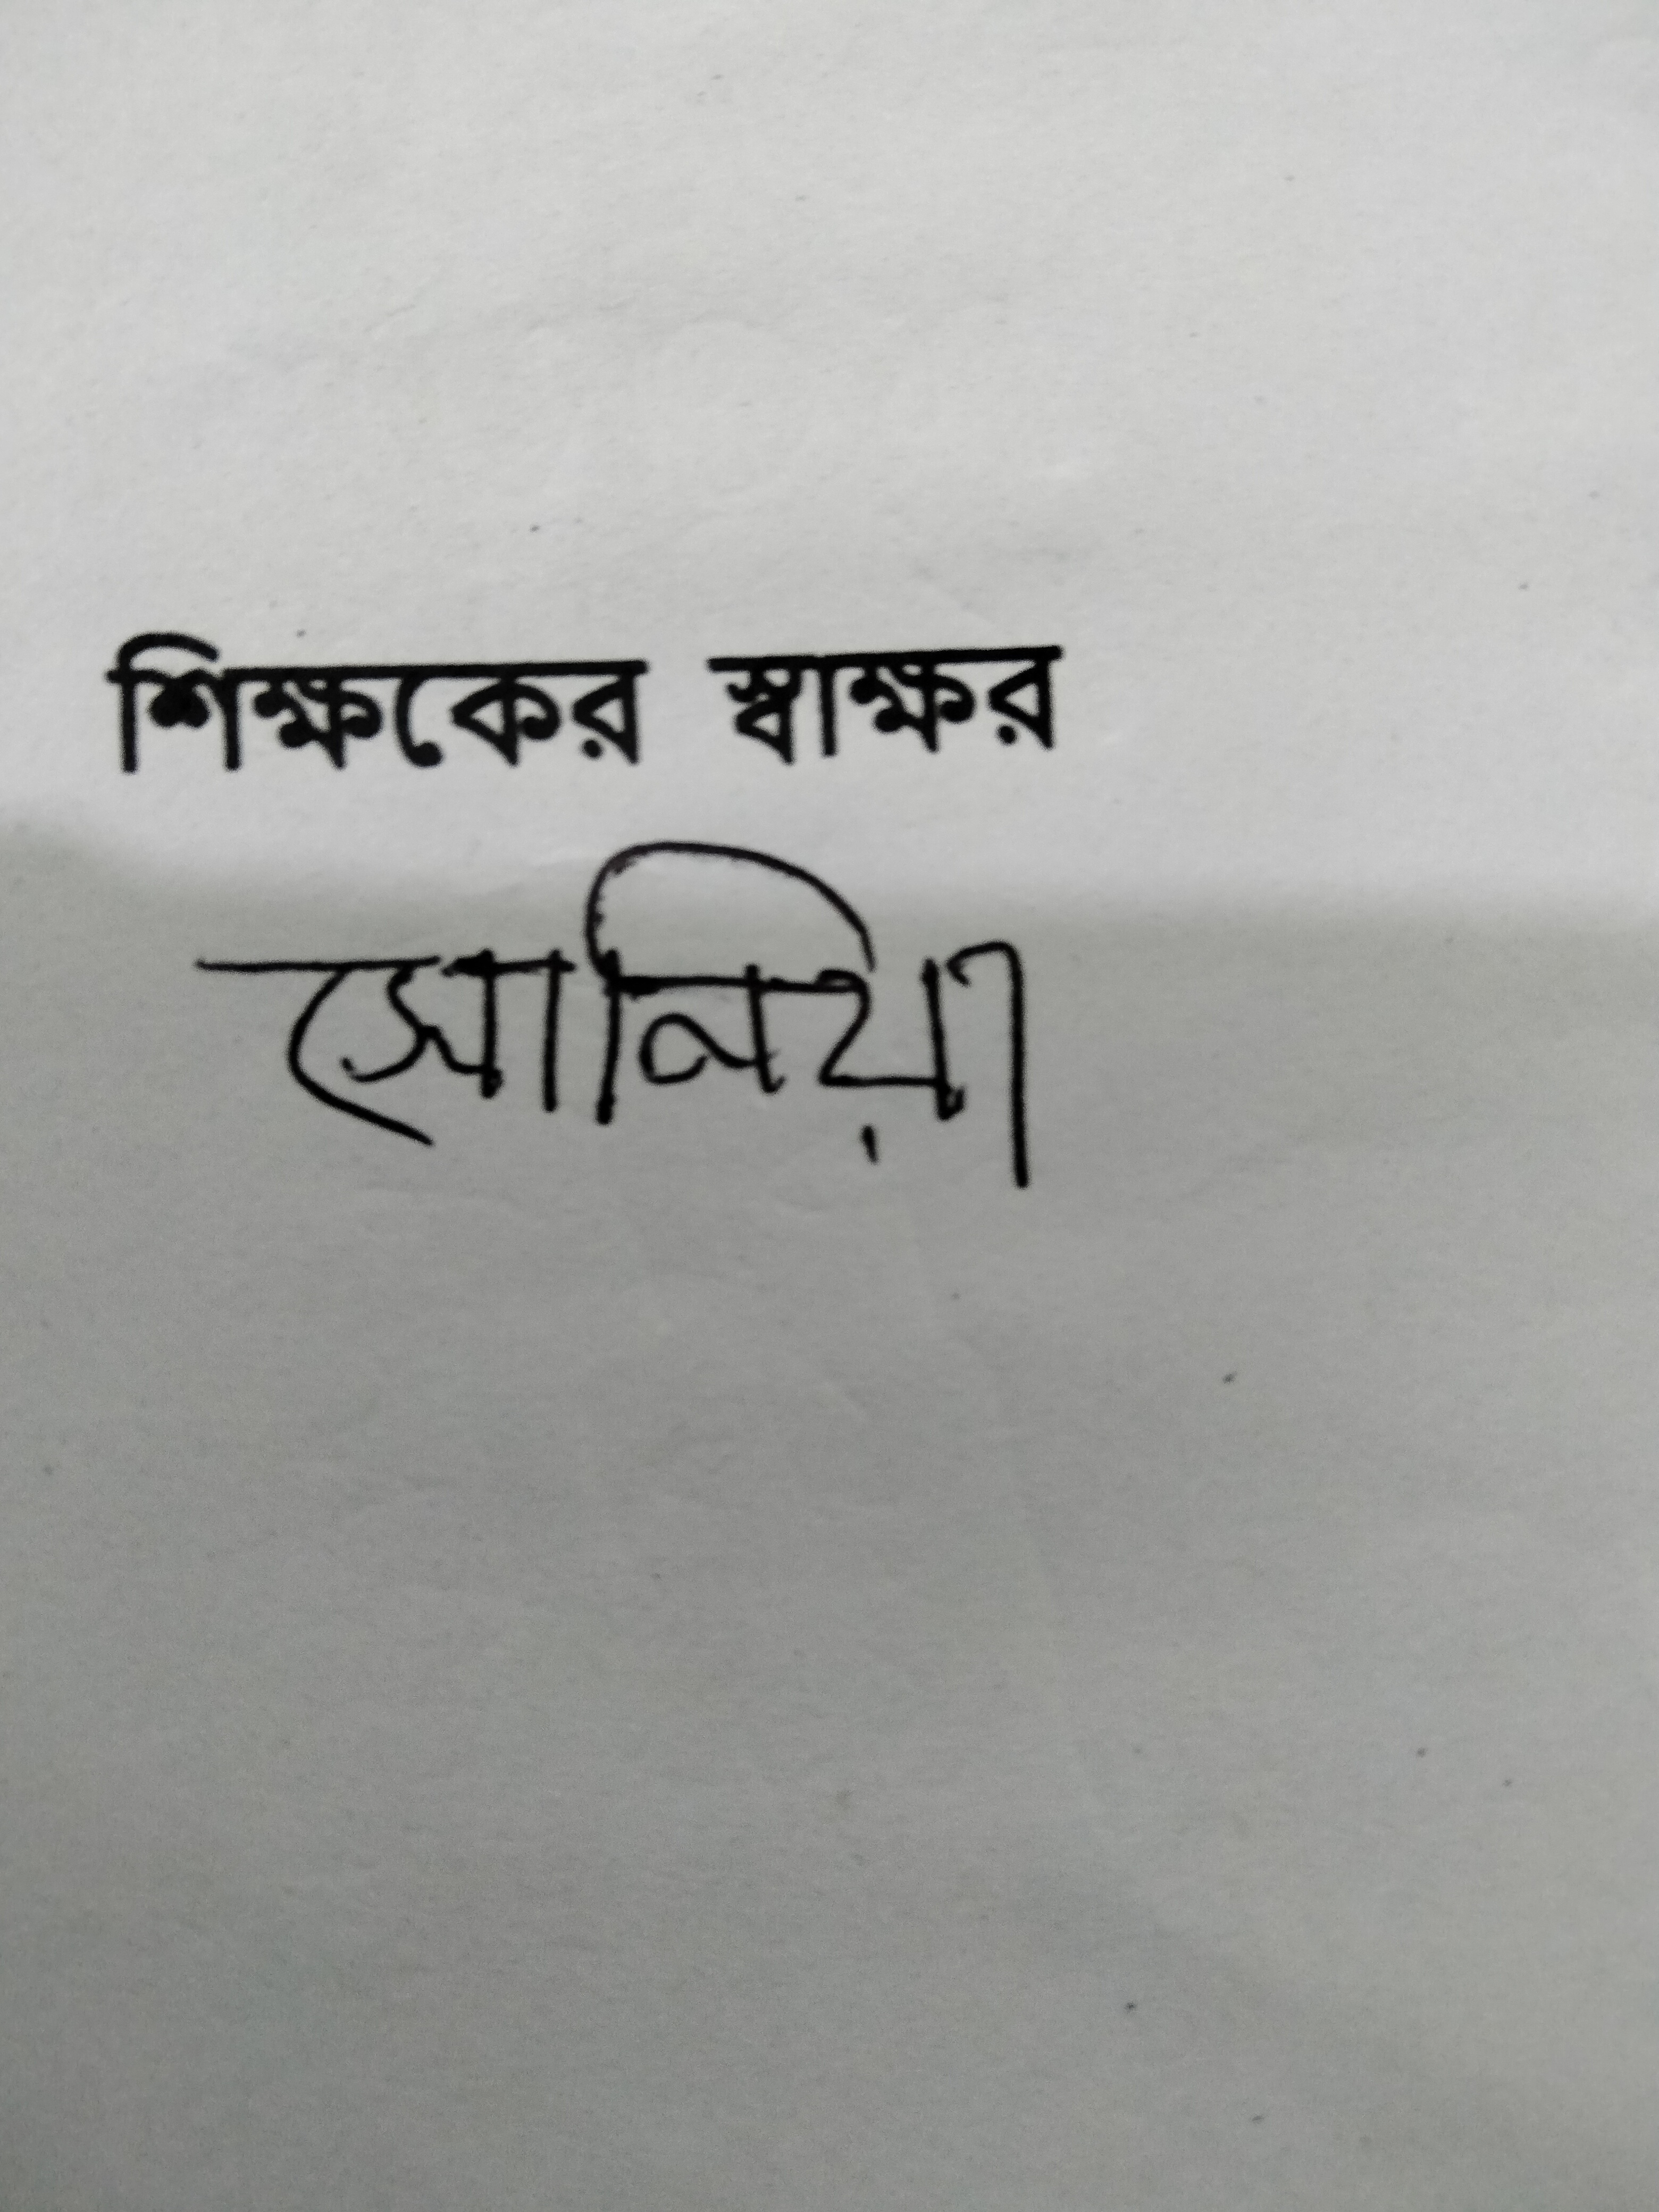 শিক্ষকের স্বাক্ষর
সোনিয়া